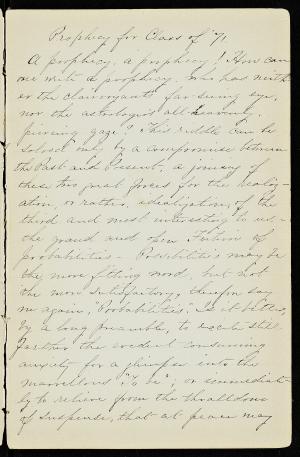 Prophecy for Class of '71
A prophecy, a prophecy! How can
one write a prophecy, who has neith-
er the clairvoyant's far-seeing eye,
nor the astrologist's all-heavenly,
piercing gaze? This riddle can be
solved only by a compromise between
the Past and Present, a joining of
these two great forces for the realiz-
ation, or rather, idealization, of the
third and most interesting to us,—
the grand and open Future of
probabilities — Possibilities may be
the more fitting word, but not
the more satisfactory, therefore say
we again, "Probabilities". Is it better,
by a long preamble, to excite still
farther the evident consuming
anxiety for a glimpse into the
marvellous "To be"; or immediate-
ly to relieve from the thralldom
of suspense, that at peace may